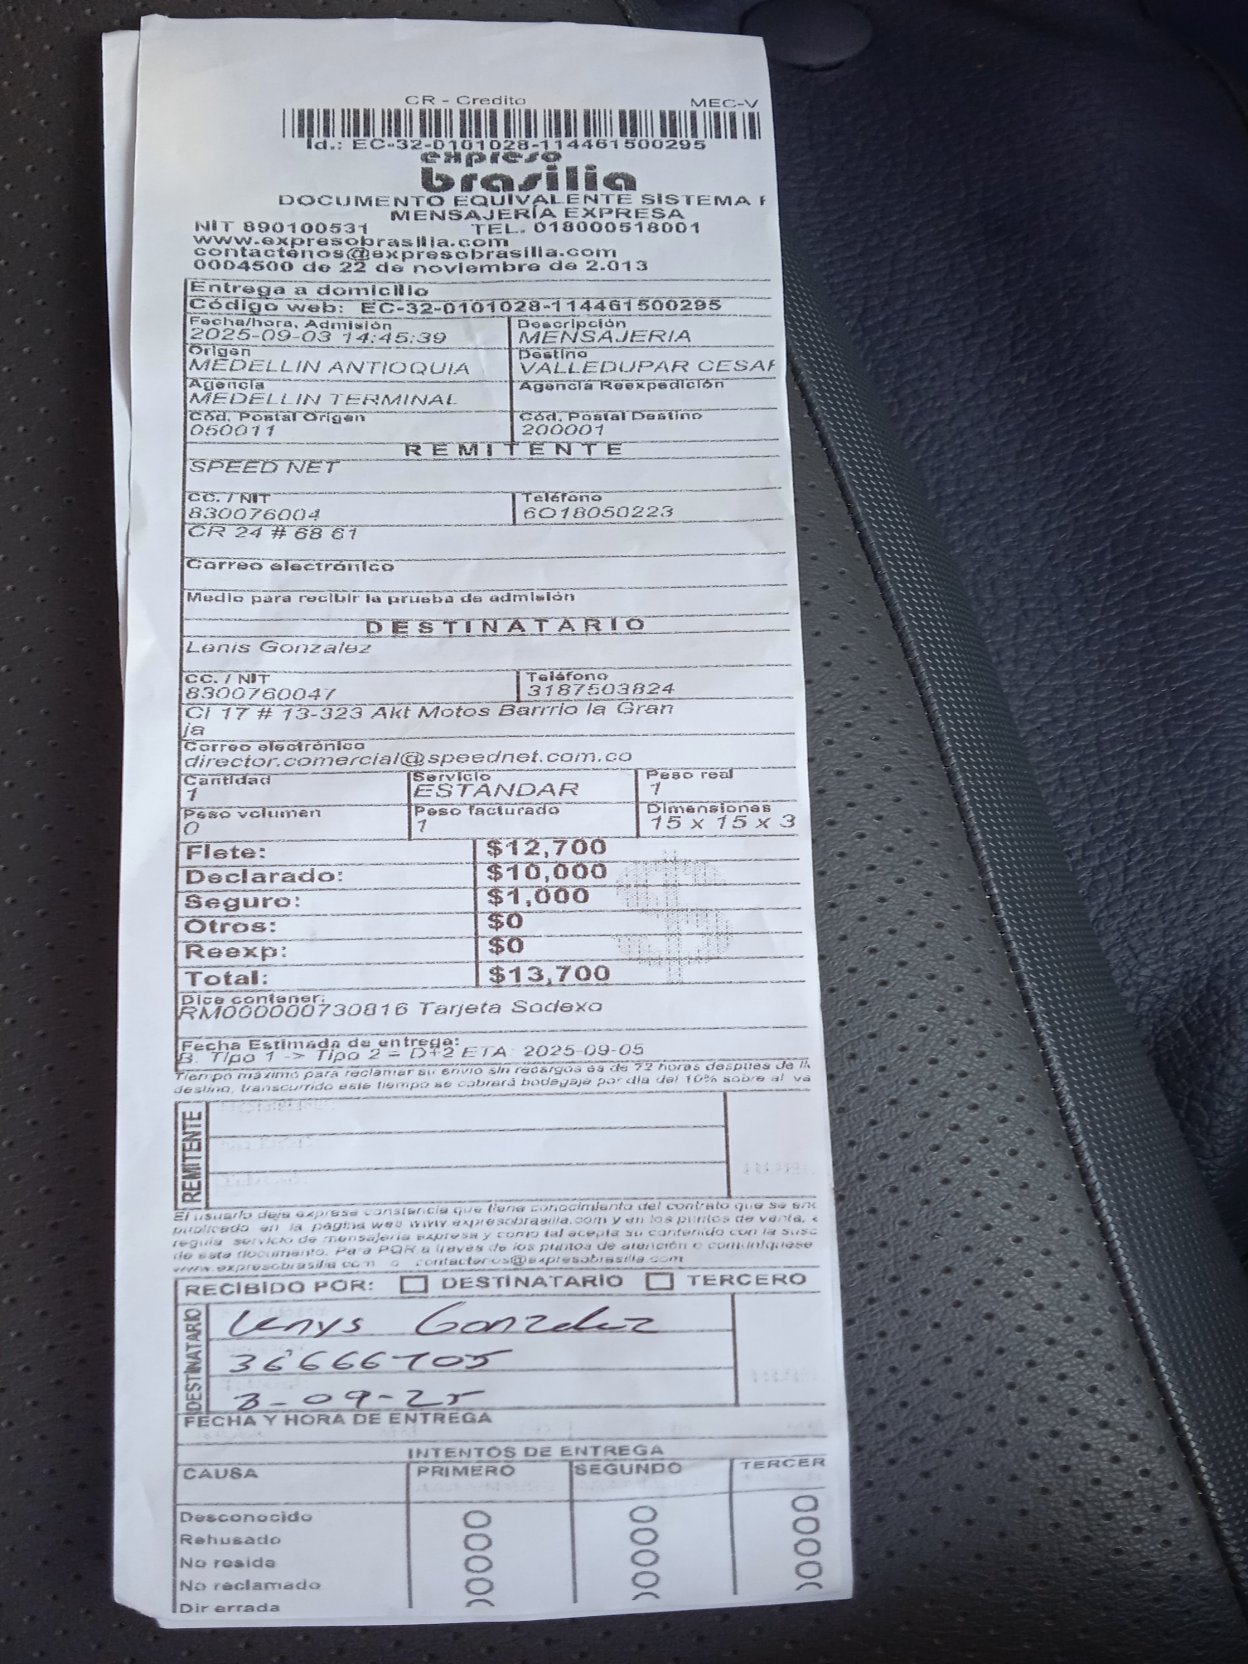 CR - Credito MEC-V
Id.: EC-32-0101028-114461500295
expreso
brasilia
DOCUMENTO EQUIVALENTE SISTEMA P
MENSAJERÍA EXPRESA
NIT 890100531 TEL. 018000518001
www.expresobrasilia.com
contactenos@expresobrasilia.com
0004500 de 22 de noviembre de 2.013
Entrega a domicilio
Código web: EC-32-0101028-114461500295
Fecha/hora. Admisión Descripción
2025-09-03 14:45:39 MENSAJERIA
Origen Destino
MEDELLIN ANTIOQUIA VALLEDUPAR CESAR
Agencia Agencia Reexpedición
MEDELLIN TERMINAL
Cód. Postal Origen Cód. Postal Destino
050011 200001
REMITENTE
SPEED NET
CC. / NIT Teléfono
830076004 6018050223
CR 24 # 68 61
Correo electrónico
Medio para recibir la prueba de admisión
DESTINATARIO
Lenis Gonzalez
CC. / NIT Teléfono
8300760047 3187503824
Cl 17 # 13-323 Akt Motos Barrrio la Gran
ja
Correo electrónico
director.comercial@speednet.com.co
Cantidad Servicio Peso real
1 ESTANDAR 1
Peso volumen Peso facturado Dimensiones
0 1 15 x 15 x 3
Flete: $12,700
Declarado: $10,000
Seguro: $1,000
Otros: $0
Reexp: $0
Total: $13,700
Dice contener:
RM000000730816 Tarjeta Sodexo
Fecha Estimada de entrega:
B. Tipo 1 -> Tipo 2 = D+2 ETA: 2025-09-05
Tiempo máximo para reclamar su envio sin recargos es de 72 horas despues de ll
destino, transcurrido este tiempo se cobrará bodegaje por día del 10% sobre el va
REMITENTE
El usuario deja expresa constancia que tiene conocimiento del contrato que se enc
publicado en la página web www.expresobrasilia.com y en los puntos de venta, q
regula servicio de mensajería expresa y como tal acepta su contenido con la susc
de este documento. Para PQR a través de los puntos de atención o comuníquese
www.expresobrasilia.com o contactenos@expresobrasilia.com
RECIBIDO POR: DESTINATARIO TERCERO
DESTINATARIO
Lenys Gonzalez
36666705
3-09-25
FECHA Y HORA DE ENTREGA
INTENTOS DE ENTREGA
CAUSA PRIMERO SEGUNDO TERCER
Desconocido
Rehusado
No reside
No reclamado
Dir errada